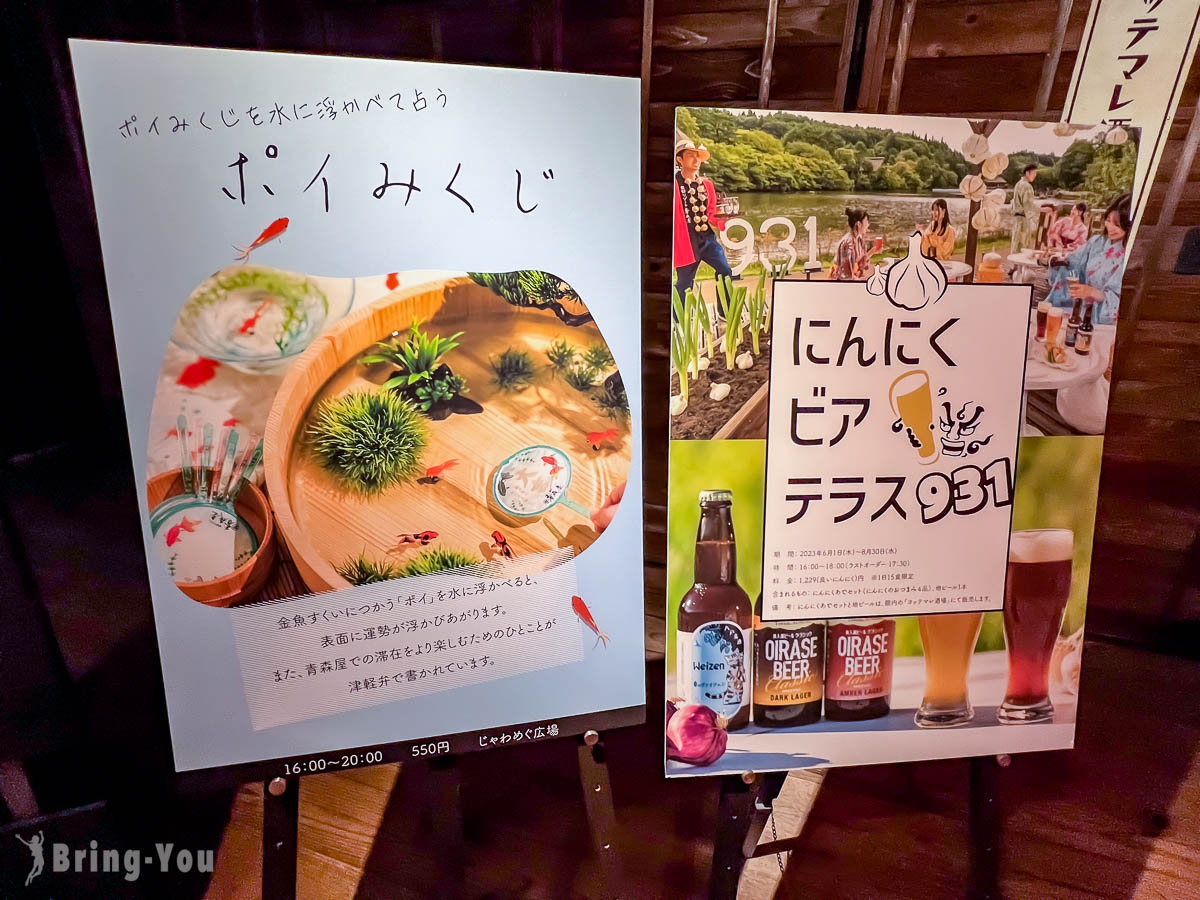 ポイみくじを水に浮かべて占う
ポイみくじ
金魚すくいにつかう「ポイ」を水に浮かべると、
表面に運勢が浮かびあがります。
また、青森屋での滞在をより楽しむためのひとことが
津軽弁で書かれています。
16:00〜20:00 550円 じゃわめぐ広場
931
にんにく
ビア
テラス931
期 間：2023年6月1日(木)〜8月30日(水)
時 間：16:00〜18:00(ラストオーダー 17:30)
料 金：1,229(良いにんにく)円 ※1日15食限定
含まれるもの：にんにくおでセット(にんにくのおつまみ4品)、地ビール1本
備 考：にんにくおでセットと地ビールは、館内の「ヨッテマレ酒場」にて販売します。
Weizen
OIRASE
BEER
Classic
DARK LAGER
OIRASE
BEER
Classic
AMBER LAGER
ッテマレ酒
Bring-You